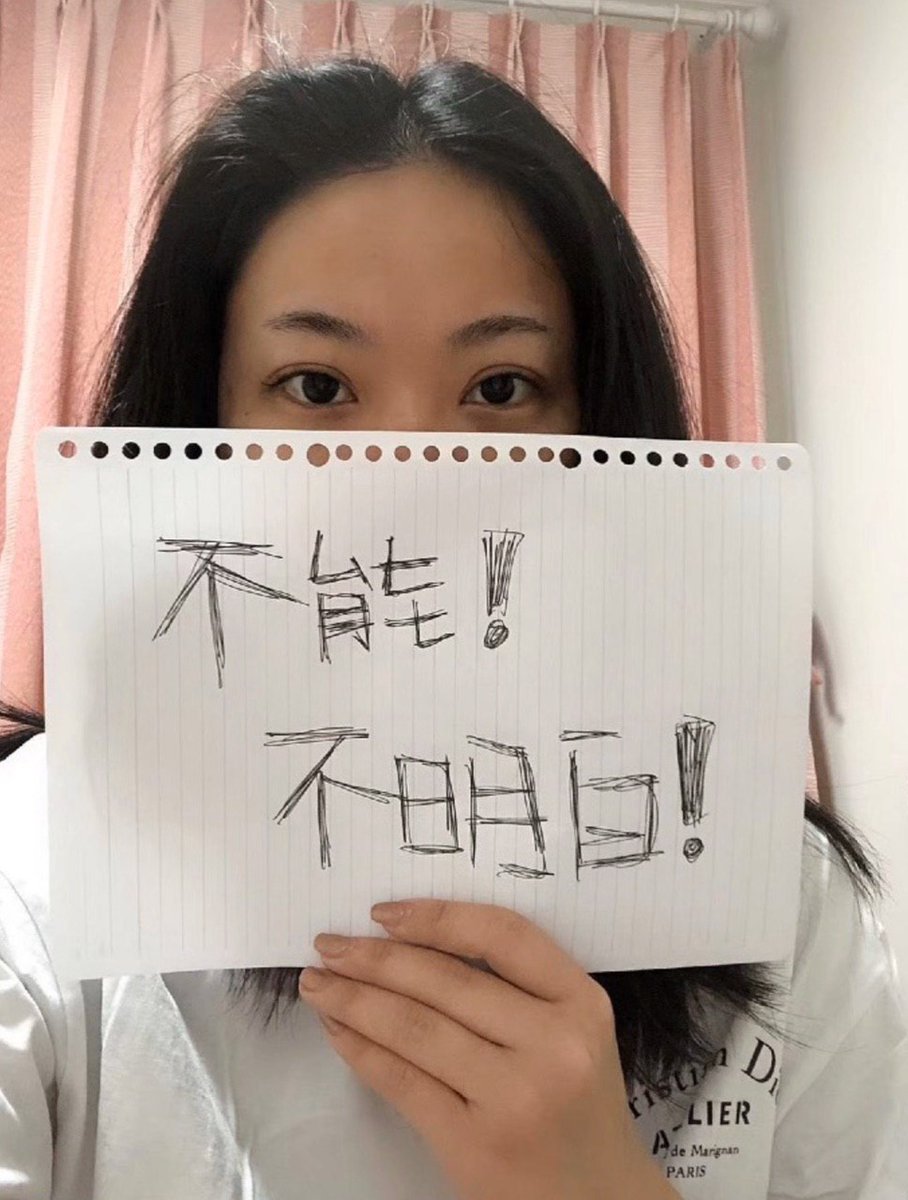 不能!
不明白!
ristian Di
A-LIER
de Marignan
PARIS